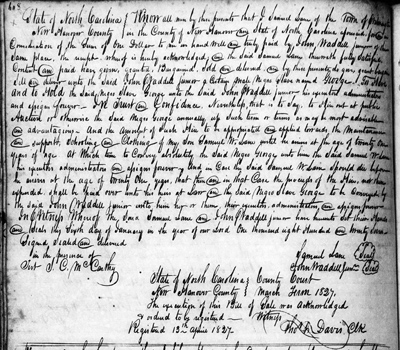 State of North Carolina Know all men by these presents that I Samuel Lane of the Town of
New Hanover County in the County of New Hanover and State of North Carolina
Consideration of the Sum of One Dollar to me in hand well and truly paid by John Waddell junior of the
Same place, the receipt whereof is hereby acknowledged, the Said Samuel Lane
Content and paid have given, granted & Bargained, Sold and delivered and by these presents do give grant bargain
Sell and deliver unto the Said John Waddell junior a Certain male Negro slave named George To Have
and to Hold the Said Negro Slave George unto the Said John Waddell junior his executors administrators
and assigns forever In Trust and Confidence, Nevertheless, that is to Say, to Hire out at public
Auction or otherwise the Said Negro George annually up Such term or terms as may be most advisable
and advantageous And the Amount of Such Hire to be appropriated and applied towards the Maintenance
and Support, Schooling and Clothing of my Son Samuel W. Lane until he arrives at the age of twenty One
years of age At which time to Convey absolutely the Said Negro George unto him the Said Samuel W. Lane
his executors administrators and assigns forever And in Case the Said Samuel W. Lane Should die before
he arrives at the age of twenty One years, that then and in that Case the proceeds of the Hire
shall be paid over unto his heirs at Law and the Said Negro Slave George to be Conveyed by
the Said John Waddell junior unto him her or them their executors, administrators, and assigns forever
In Witness Whereof the Said Samuel Lane and John Waddell junior have hereunto Set their Hands
and Seals this Sixth day of January in the year of our Lord One thousand Eight Hundred and twenty Seven
Signed Sealed and delivered
in the presence of
Samuel Lane (Seal)
John Waddell Junr (Seal)
State of North Carolina County Court
New Hanover County March Term 1827.
The execution of this Bill of Sale was acknowledged
& ordered to be registered Witness
Registered 13th April 1827. Davis Clk